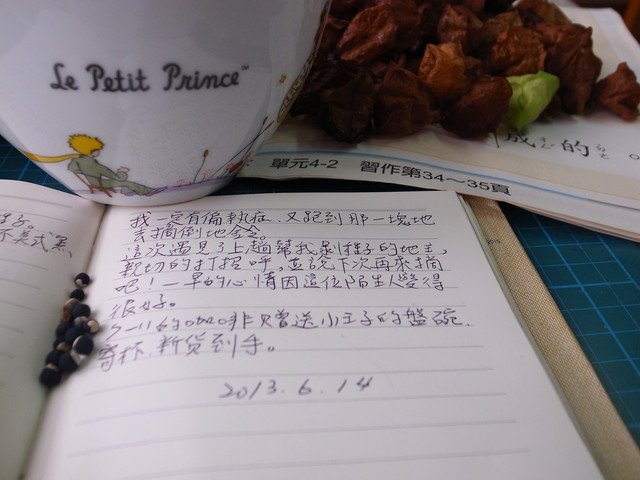 Le Petit Prince™
成的
單元4-2 習作第34～35頁
我一定有偏執症,又跑到那一塊地
去摘倒地鈴。
這次遇見了上趟幫我剝種子的地主,
親切的打招呼,並說下次再來摘
吧!一早的心情因這位陌生人變得
很好。
7-11的 送小王子的盤碗、
杯,新貨到手。
2013.6.14